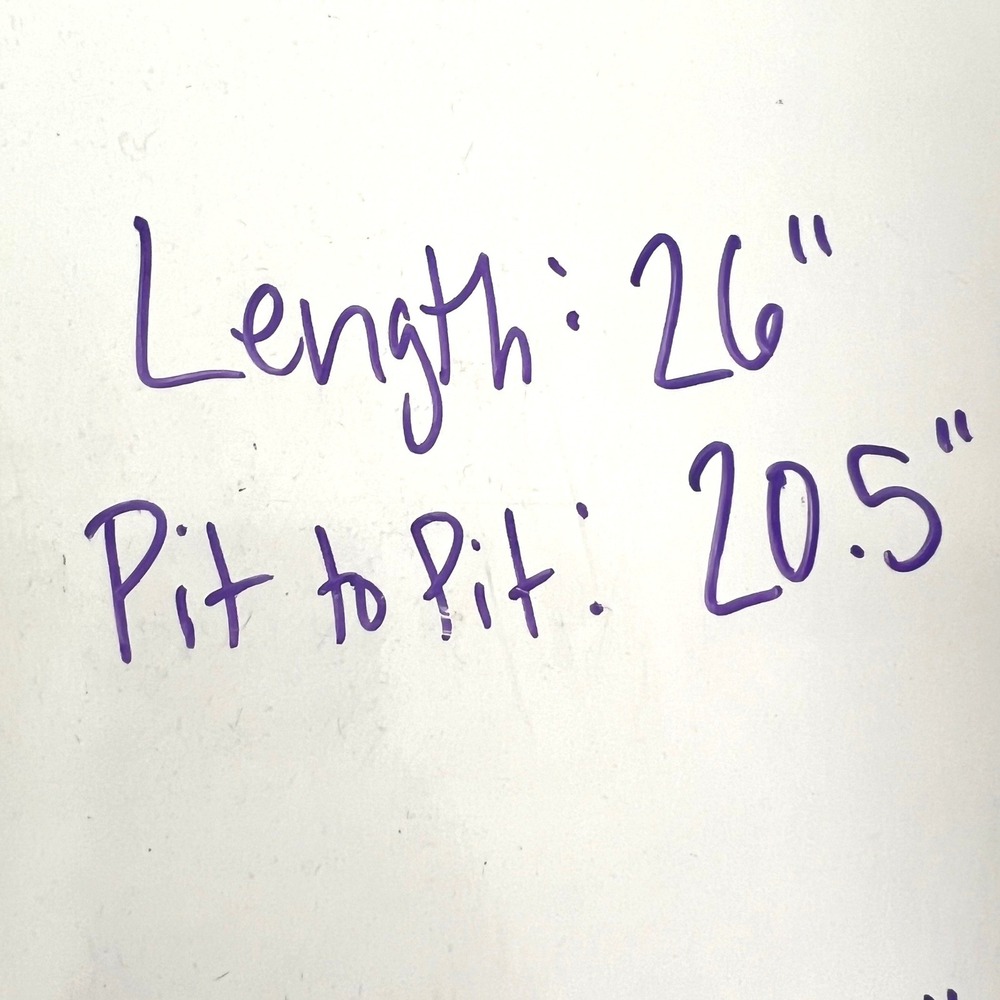 Length: 26"
Pit to Pit: 20.5"